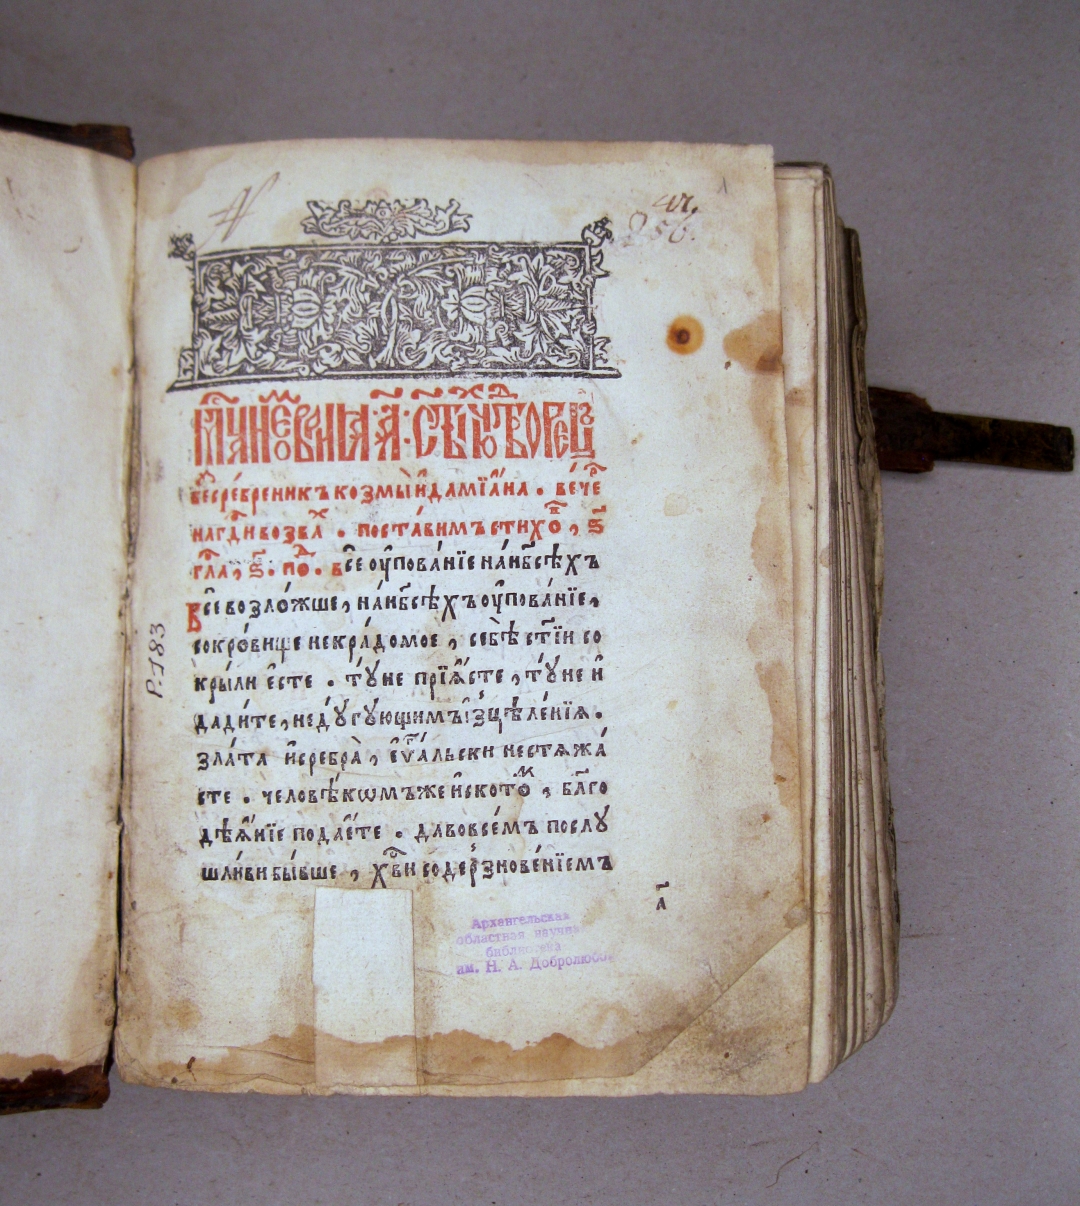 256.
Мц҃а ноеврїа, а҃. ст҃ы́хъ чюдотво́рецъ
бе́сре́бреникъ козмы̀ и҆дамїа́на . ве́че҃
нагд҃и воззва́х . поста́вимъ стихѡ҃в , ѕ҃
гл҃а, ѕ҃ . по҃д . все̑ оу҆пова́нїе нан҃бсѣхъ
Все̑ возло́жше, нан҃бсѣ́хъ оу҆пова́нїе,
сокро́вище некра́домое , себѣ̀ ст҃їи со
кры́ли є҆сте . ту́не прїѧ́сте , ту́не и҆
дади́те, неду́гующимъ и҆зцѣле́нїѧ .
зла́та и҆сребра̀ , є҆ѵⷢа҆льски нестѧжа́
сте . человѣ́кѡмъ же и҆ското́м , бл҃го
дѣѧ́нїе подае́те . да вовсе́мъ послу́
шли́ви бы́вше , хв҃и содерзнове́нїемъ
а҃
Р-183
Архангельская
областная научная
библиотека
им. Н. А. Добролюбова